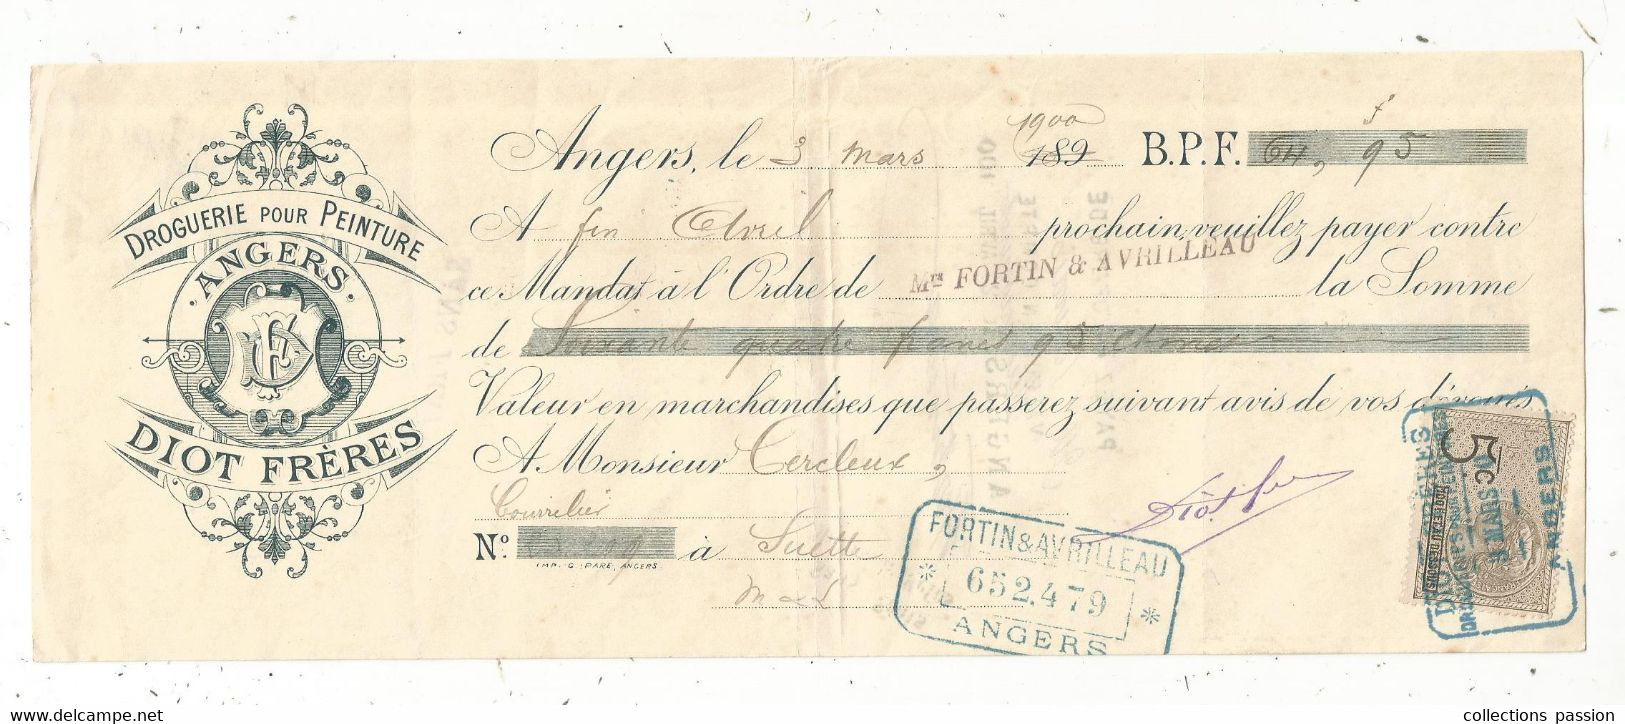 DROGUERIE POUR PEINTURE
ANGERS
DIOT FRÈRES
Angers, le 3 mars 1900 189 B.P.F. 64, 95 f
A fin Avril prochain, veuillez payer contre
ce Mandat à l'Ordre de Mrs FORTIN & AVRILLEAU la Somme
de Soixante quatre francs 95 cmes
Valeur en marchandises que passerez suivant avis de vos dévoués
A Monsieur Cercleux,
Bourrelier
No. à Suette
IMP. G. PARÉ, ANGERS
M & L
Diot fres
FORTIN & AVRILLEAU
* 652.479 *
ANGERS
5c
DIOT FRÈRES
3 MARS
ANGERS
www.delcampe.net
collections passion